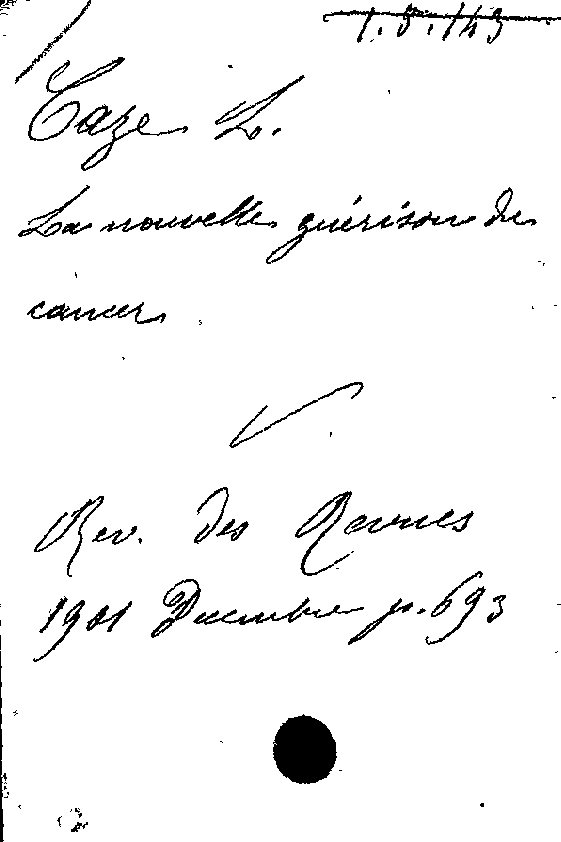 1.5.143
Caze L.
La nouvelle guérison du
cancer
Rev. des Revues
1901 Decembre p. 693